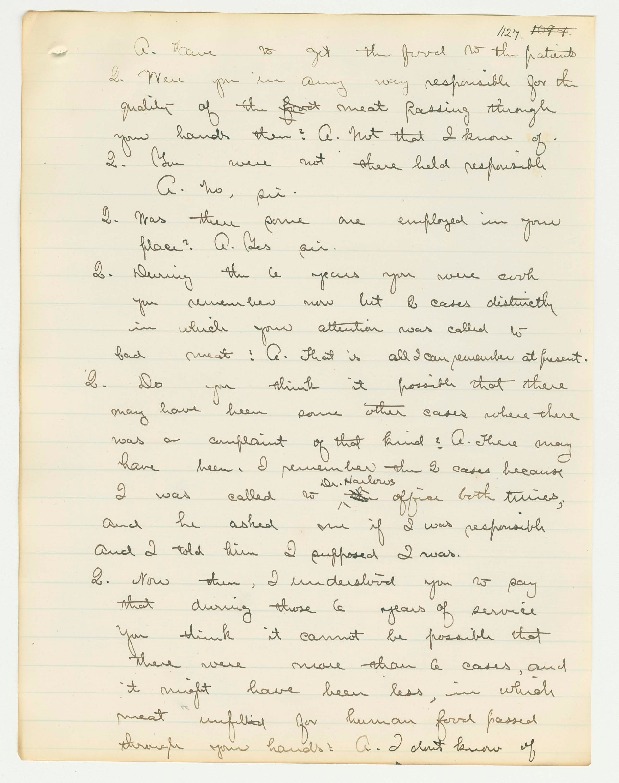 1127 1094.
A. Have to get the food to the patients
Q. Were you in any way responsible for the
quality of the food meat passing through
your hands then? A. Not that I know of.
Q. You were not there held responsible
A. No, sir.
Q. Was there some one employed in your
place? A. Yes sir.
Q. During the 6 years you were cook
you remember now but 2 cases distinctly
in which your attention was called to
bad meat? A. That is all I can remember at present.
Q. Do you think it possible that there
may have been some other cases where there
was a complaint of that kind? A. There may
have been. I remember the 2 cases because
Dr. Harlows
I was called to the office both times,
and he asked me if I was responsible
and I told him I supposed I was.
Q. Now then, I understood you to say
that during those 6 years of service
you think it cannot be possible that
there were more than 6 cases, and
it might have been less, in which
meat for human food passed
through your hands? A. I don't know of